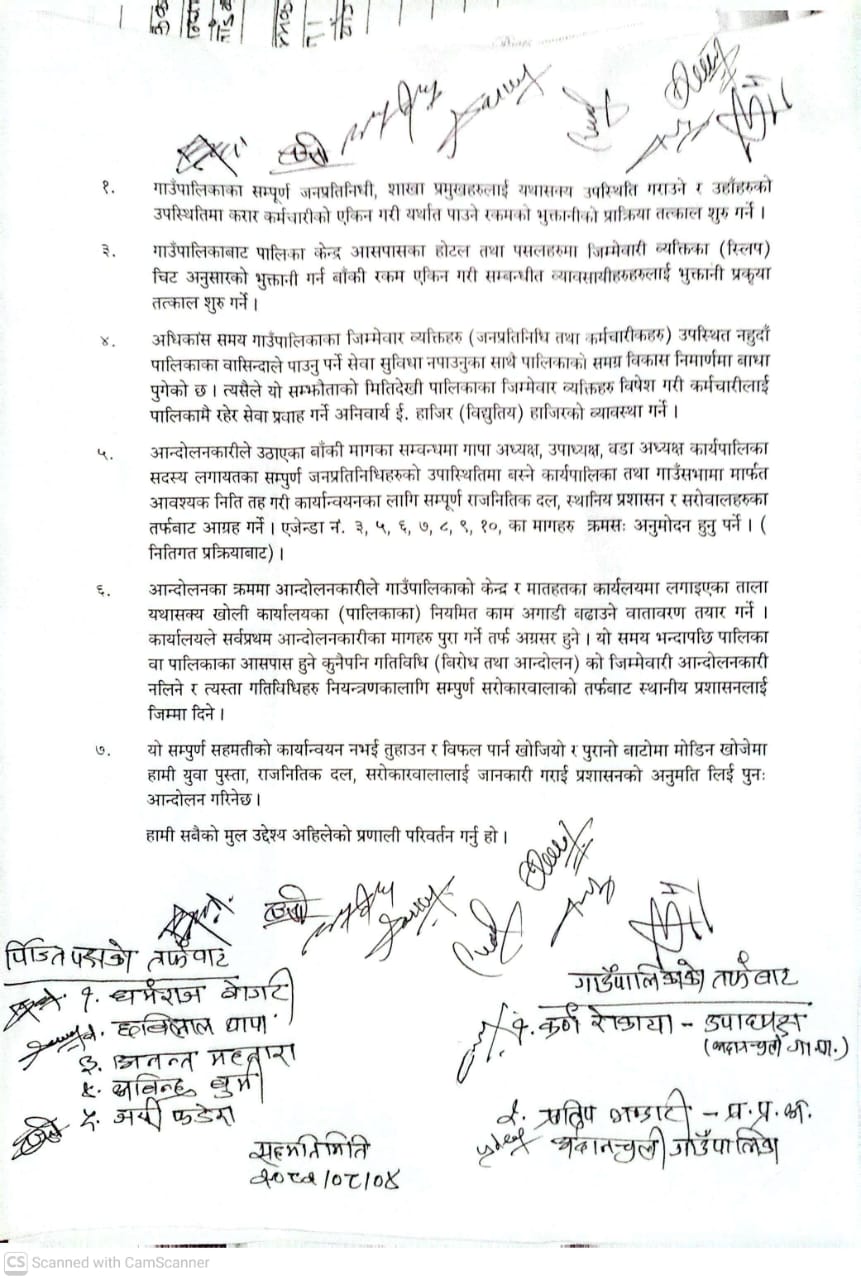 १. गाउँपालिकाका सम्पूर्ण जनप्रतिनिधी, शाखा प्रमुखहरुलाई यथासक्य उपस्थिति गराउने र उहाँहरुको
उपस्थितिमा करार कर्मचारीको एकिन गरी यर्थात पाउने रकमको भुक्तानीको प्राक्रिया तत्काल शुरु गर्ने ।
३. गाउँपालिकाबाट पालिका केन्द्र आसपासका होटल तथा पसलहरुमा जिम्मेवारी व्यक्तिका (स्लिप)
चिट अनुसारको भुक्तानी गर्न बाँकी रकम एकिन गरी सम्बन्धीत व्यावसायीहरुहरुलाई भुक्तानी प्रकृया
तत्काल शुरु गर्ने ।
४. अधिकांस समय गाउँपालिकाका जिम्मेवार व्यक्तिहरु (जनप्रतिनिधि तथा कर्मचारीकहरु) उपस्थित नहुदाँ
पालिकाका वासिन्दाले पाउनु पर्ने सेवा सुविधा नपाउनुका साथै पालिकाको समग्र विकास निमार्णमा बाधा
पुगेको छ । त्यसैले यो सम्झौताको मितिदेखी पालिकाका जिम्मेवार व्यक्तिहरु विषेश गरी कर्मचारीलाई
पालिकामै रहेर सेवा प्रवाह गर्ने अनिवार्य ई. हाजिर (विद्युतिय) हाजिरको व्यावस्था गर्ने ।
५. आन्दोलनकारीले उठाएका बाँकी मागका सम्वन्धमा गापा अध्यक्ष, उपाध्यक्ष, वडा अध्यक्ष कार्यपालिका
सदस्य लगायतका सम्पुर्ण जनप्रतिनिधिहरुको उपास्थितिमा बस्ने कार्यपालिका तथा गाउँसभामा मार्फत
आवश्यक निति तह गरी कार्यान्वयनका लागि सम्पूर्ण राजनितिक दल, स्थानिय प्रशासन र सरोवालहरुका
तर्फबाट आग्रह गर्ने । एजेन्डा नं. ३, ५, ६, ७, ८, ९, १०, का मागहरु क्रमसः अनुमोदन हुनु पर्ने । (
नितिगत प्रक्रियाबाट) ।
६. आन्दोलनका क्रममा आन्दोलनकारीले गाउँपालिकाको केन्द्र र मातहतका कार्यलयमा लगाइएका ताला
यथासक्य खोली कार्यालयका (पालिकाका) नियमित काम अगाडी बढाउने वातावरण तयार गर्ने ।
कार्यालयले सर्वप्रथम आन्दोलनकारीका मागहरु पुरा गर्ने तर्फ अग्रसर हुने । यो समय भन्दापछि पालिका
वा पालिकाका आसपास हुने कुनैपनि गतिविधि (बिरोध तथा आन्दोलन) को जिम्मेवारी आन्दोलनकारी
नलिने र त्यस्ता गतिविधिहरु नियन्त्रणकालागि सम्पुर्ण सरोकारवालाको तर्फबाट स्थानीय प्रशासनलाई
जिम्मा दिने ।
७. यो सम्पुर्ण सहमतीको कार्यान्वयन नभई तुहाउन र विफल पार्न खोजियो र पुरानो बाटोमा मोडिन खोजेमा
हामी युवा पुस्ता, राजनितिक दल, सरोकारवालालाई जानकारी गराई प्रशासनको अनुमति लिई पुनः
आन्दोलन गरिनेछ ।
हामी सबैको मुल उद्देश्य अहिलेको प्रणाली परिवर्तन गर्नु हो ।
पिडित पक्षको तर्फबाट
१. धर्मराज बोगटी
२. छविलाल थापा
३. अनन्त महतारा
४. अबिन्द्र बुमी
५. जयी फडेरा
सहमति मिति
२०८२/०८/०४
गाउँपालिकाको तर्फबाट
१. कर्ण रोकाया - उपाध्यक्ष
२. - प्र. प्र. अ.
गाउँपालिका
CS Scanned with CamScanner